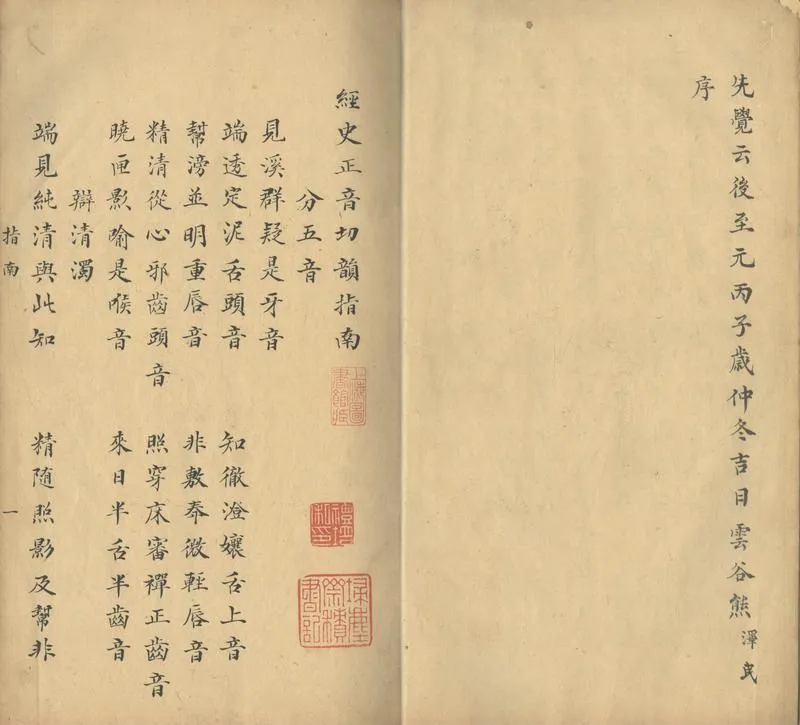 先覺云後至元丙子歲仲冬吉日雲谷熊澤民
序
經史正音切韻指南
上海圖書館藏
禮培私印
埽塵齋積書記
分五音
見溪群疑是牙音
端透定泥舌頭音 知徹澄孃舌上音
幫滂並明重唇音 非敷奉微輕唇音
精清從心邪齒頭音 照穿床審禪正齒音
曉匣影喻是喉音 來日半舌半齒音
辯清濁
端見純清與此知 精隨照影及幫非
指南 一